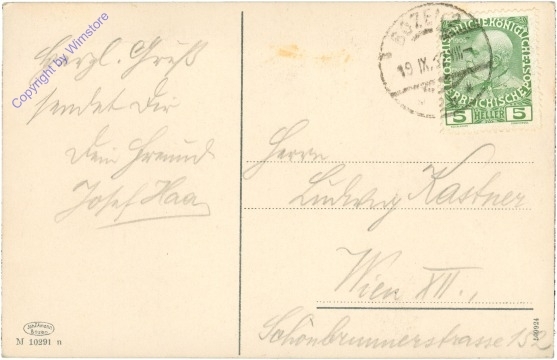 Herzl. Gruß
sendet Dir
Dein Freund
Josef Haa
Copyright by Wimstore
M 10291 n
BOZEN
19 IX
KAISERLICHE KÖNIGLICHE
ÖSTERREICHISCHE POST
5 HELLER 5
Herrn
Ludwig Kastner
Wien XII.,
Schönbrunnerstrasse 152
160924